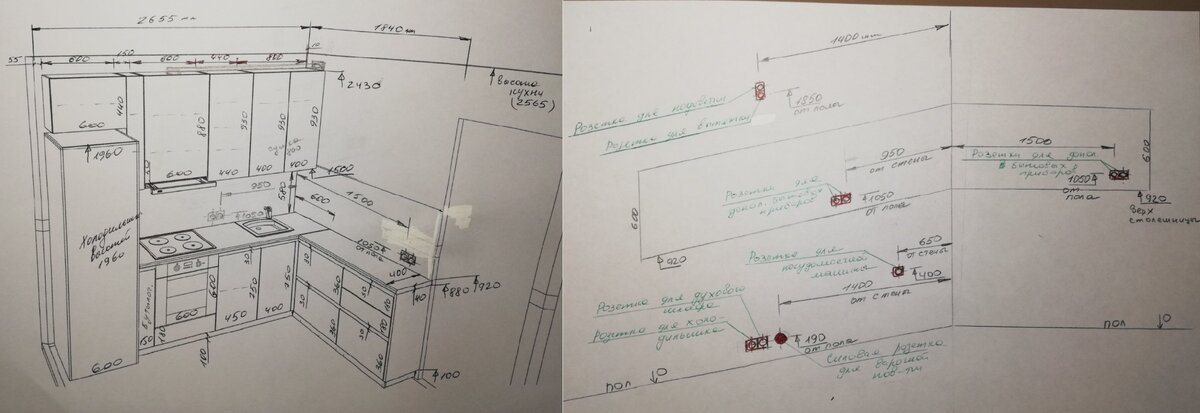 2655 мм
1840 мм
55
600
150
600
440
800
10
2430
высота
кухни
(2565)
440
600
880
930
930
930
1960
600
440
400
400
1500
950
1050
580
600
1500
Холодильник
высотой
1960
1050
от пола
400
880
920
40
600
600
150
180
450
400
100
360
360
360
100
1400 мм
1850
от пола
Розетка для подсветки
Розетка для вытяжки
950
от стены
Розетка для
допол. бытовых
приборов
1050
от пола
600
920
1500
Розетки для допол.
бытовых
приборов
1050
от пола
600
920
верх
столешницы
650
от стены
Розетка для
посудомоечной
машины
400
1400
от стены
Розетка для духового
шкафа
Розетка для холо-
дильника
190
от пола
Силовая розетка
для варочной
пов-ти
пол
0
пол
0